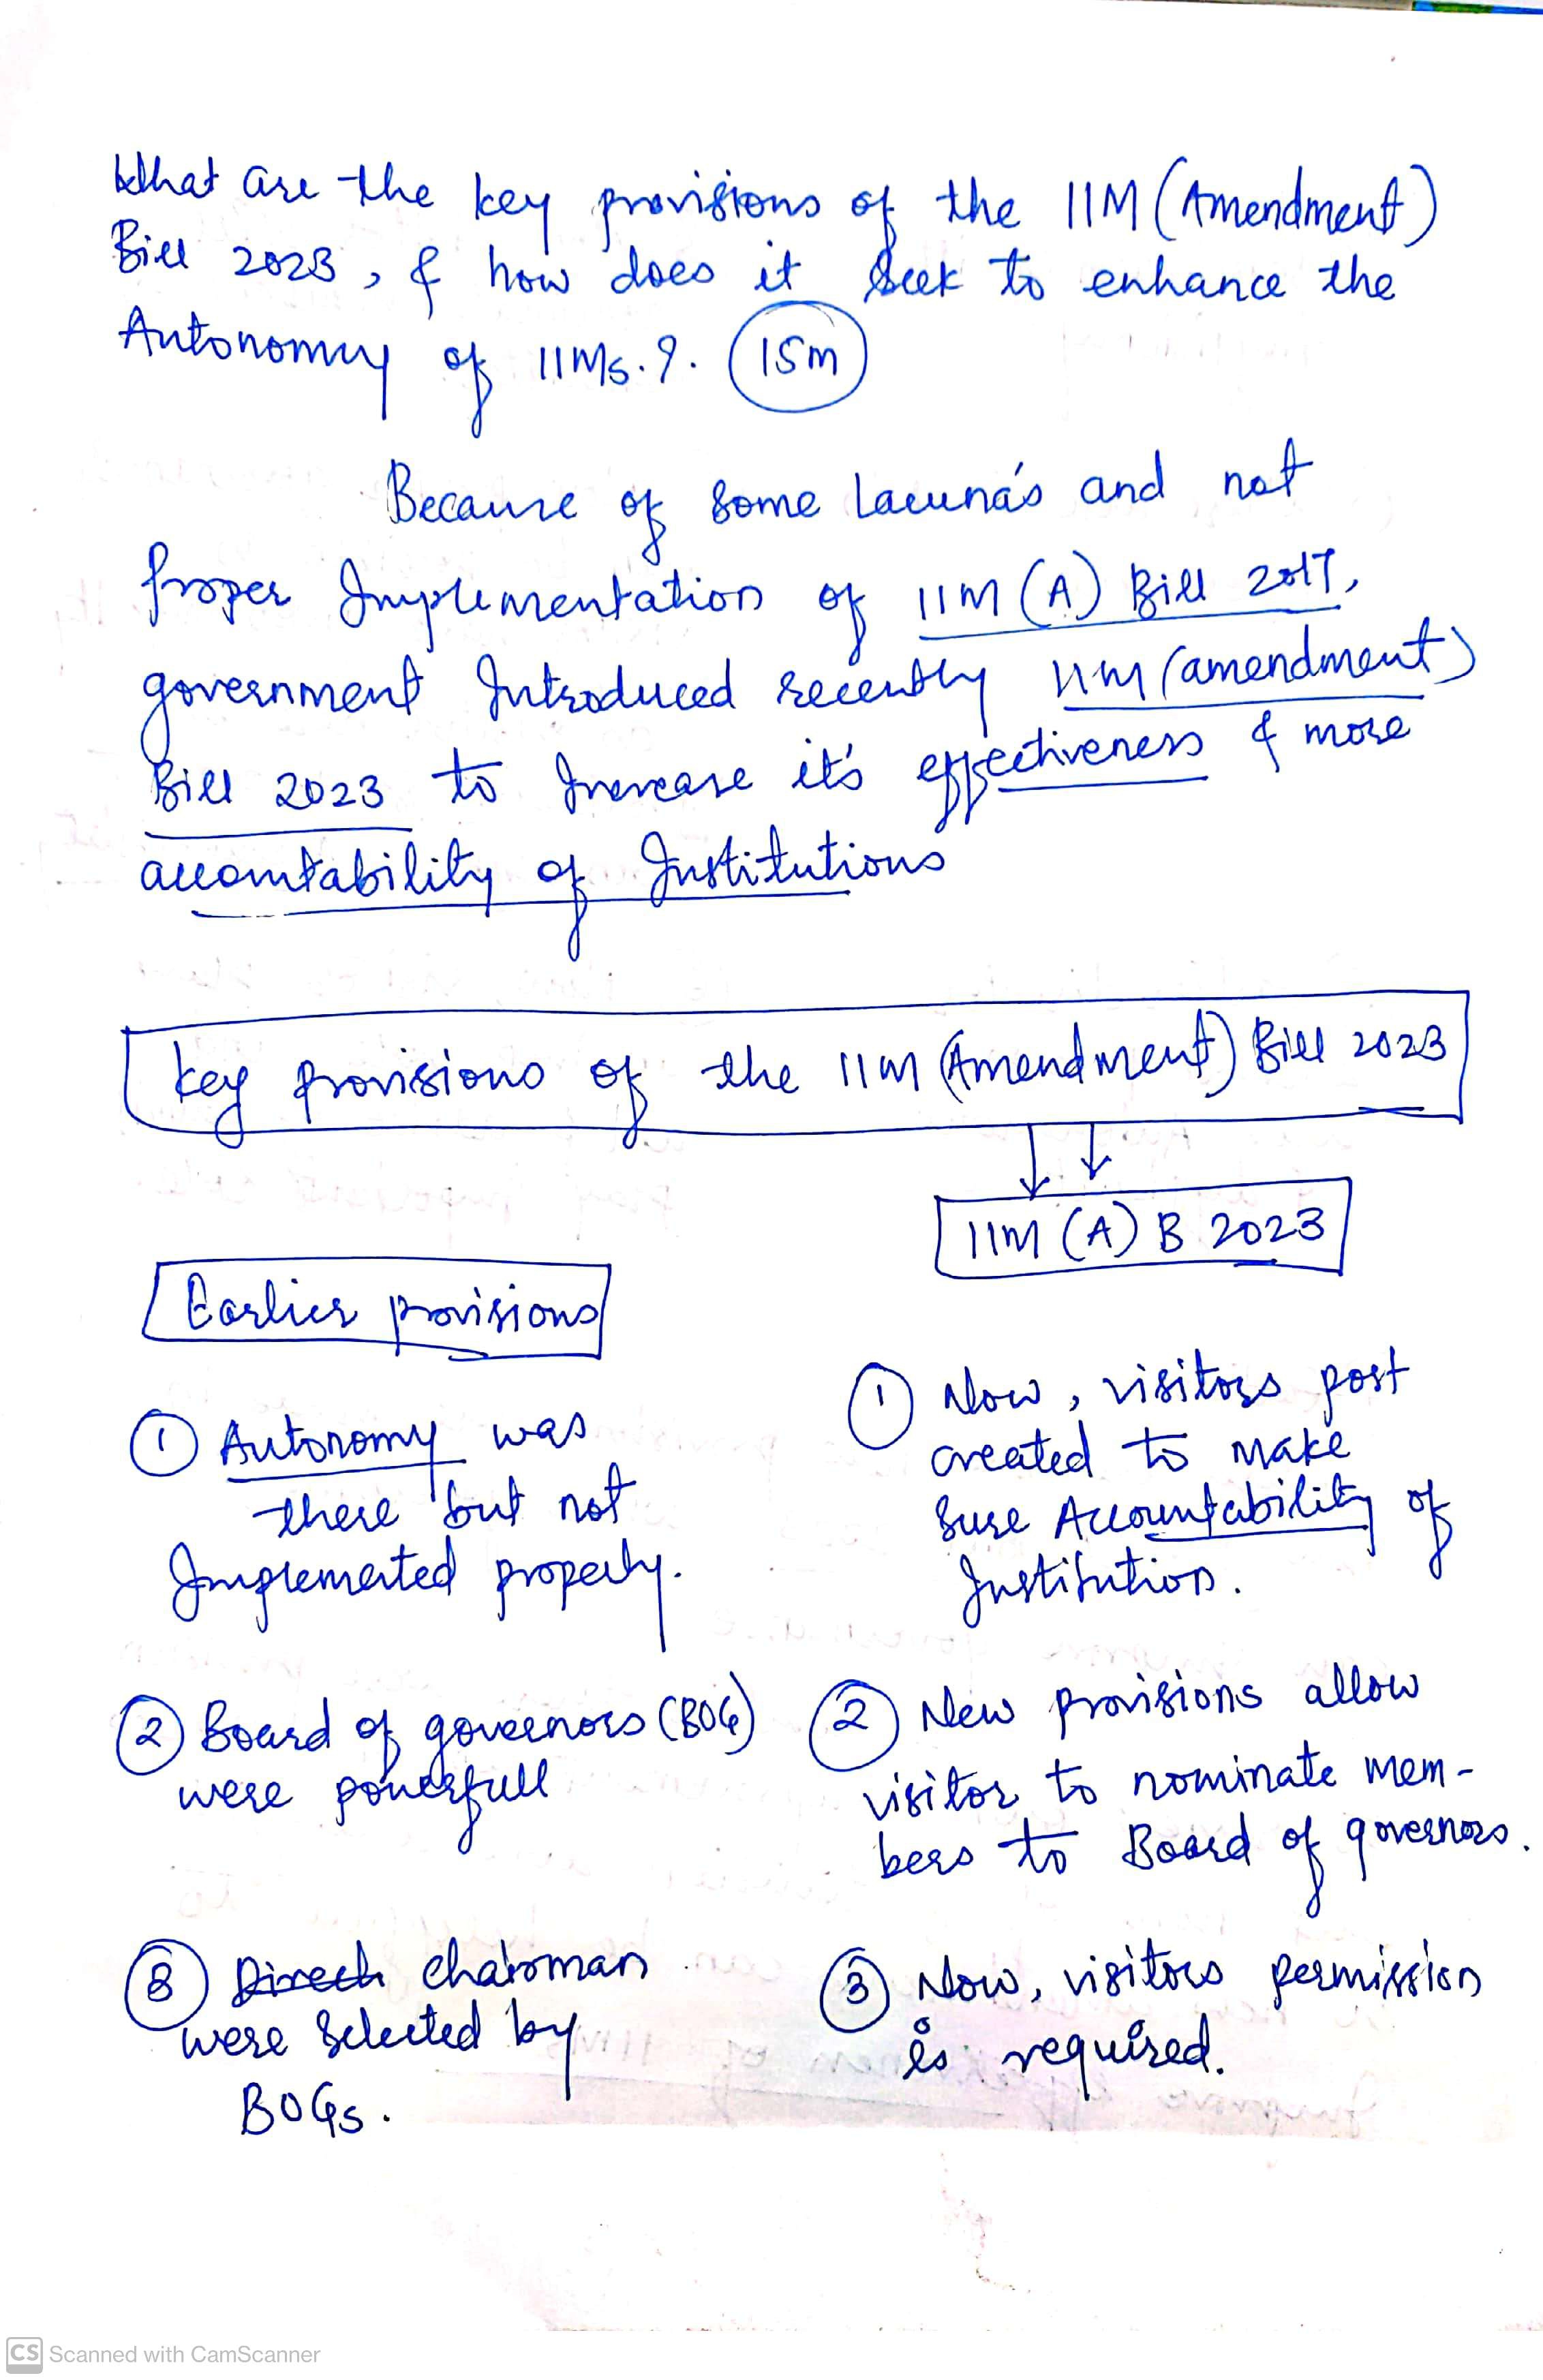 What are the key provisions of the IIM (Amendment)
Bill 2023, & how does it seek to enhance the
Autonomy of IIMs.?. (15m)
Because of some Lacuna's and not
proper Implementation of IIM (A) Bill 2017,
government Introduced recently IIM (amendment)
Bill 2023 to Increase it's effectiveness & more
accountability of Institutions
key provisions of the IIM (Amendment) Bill 2023
IIM (A) B 2023
Earlier provisions
① Autonomy was
there but not
Implemented properly.
② Board of governors (BOG)
were powerfull
③ Direch chairman
were selected by
BOGs.
① Now, visitors post
created to make
sure Accountability of
Institution.
② New provisions allow
visitor to nominate mem-
bers to Board of governors.
③ Now, visitors permission
is required.
CS Scanned with CamScanner